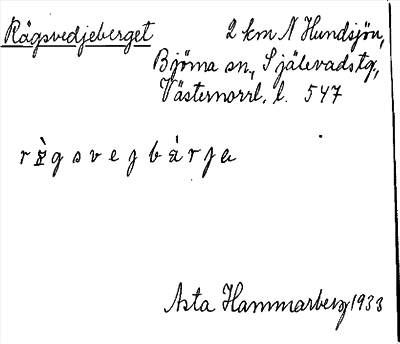 Rågsvedjeberget
2 km N Hundsjön,
Björna sn., Själevads tg.,
Västernorrl. l. 547
Asta Hammarberg 1933